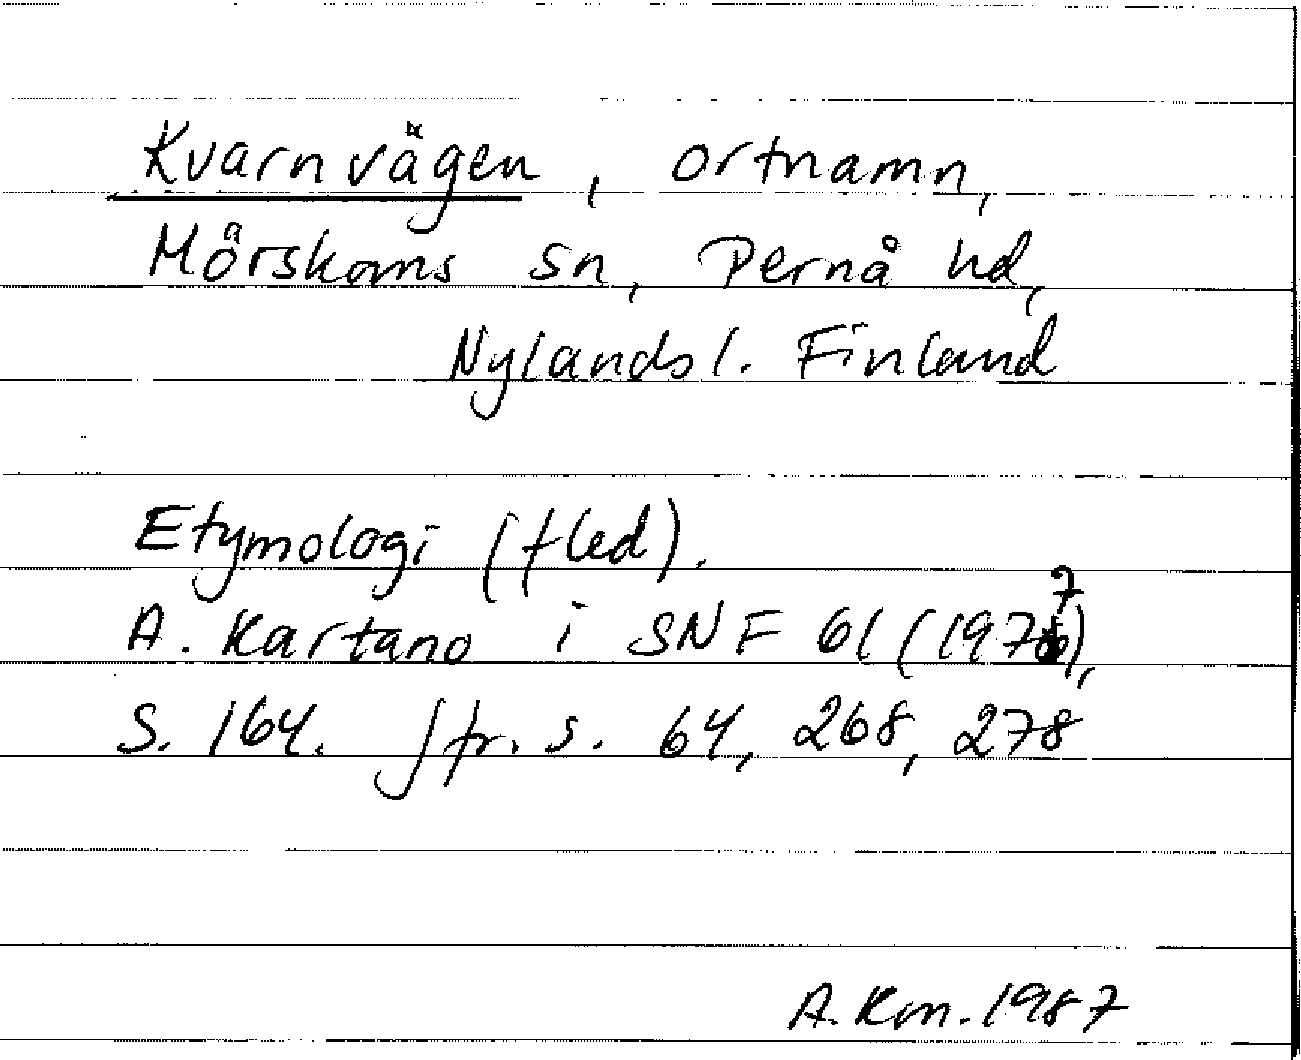 Kvarnvägen, ortnamn,
Mörskoms sn, Pernå hd,
Nylands l. Finland
Etymologi (fled).
A. Kartano i SNF 61 (1977),
s. 164. Jfr. s. 64, 268, 278
A. Km. 1987